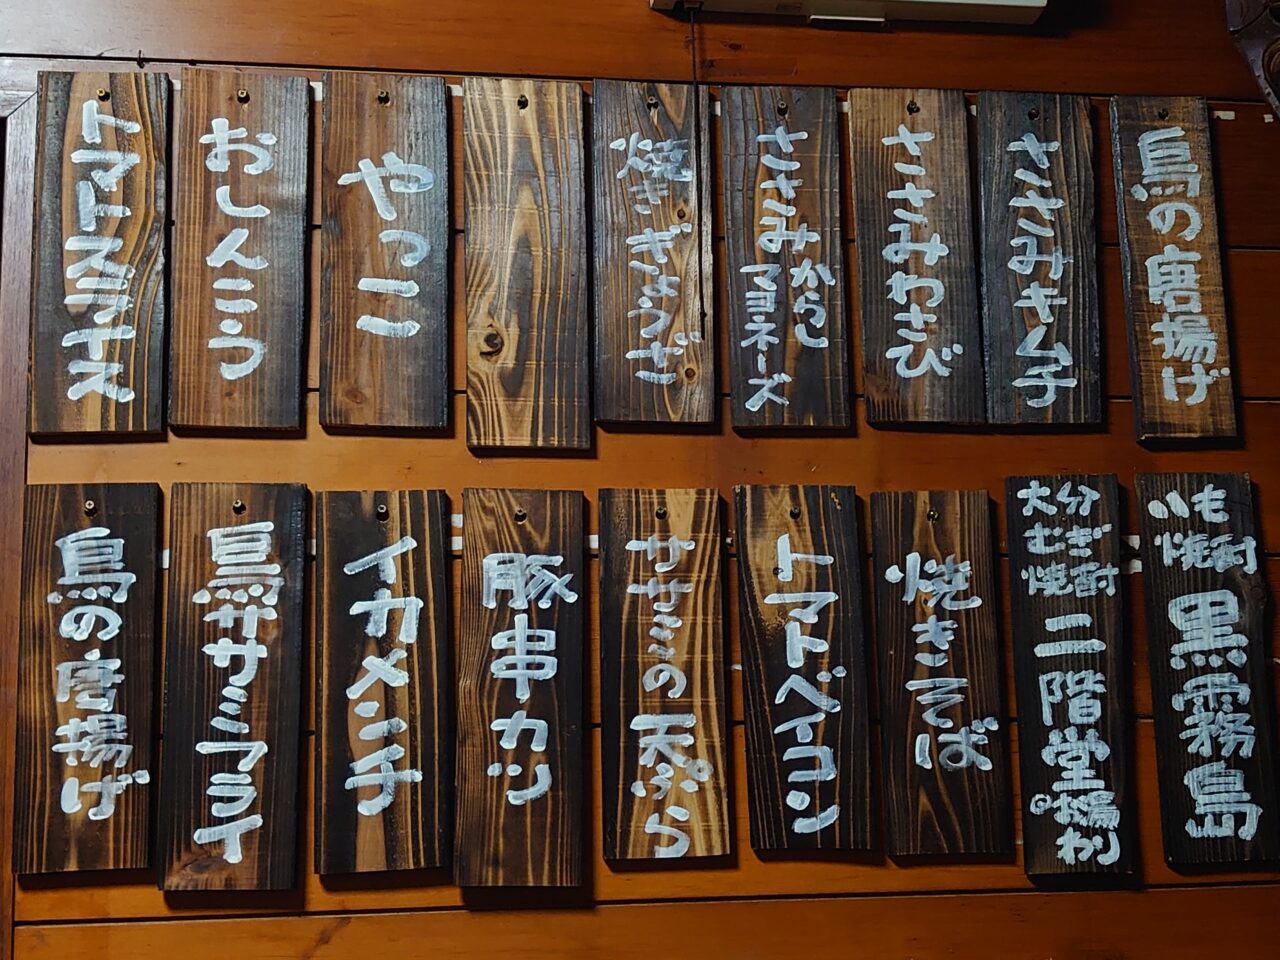 鳥の唐揚げ
ささみキムチ
ささみわさび
ささみからし
マヨネーズ
焼きぎょうざ
やっこ
おしんこう
トマトスライス
いも
焼酎
黒霧島
大分
むぎ
焼酎
二階堂
焼きそば
トマトベイコン
ササミの天ぷら
豚串カツ
イカメンチ
鳥ササミフライ
鳥の唐揚げ